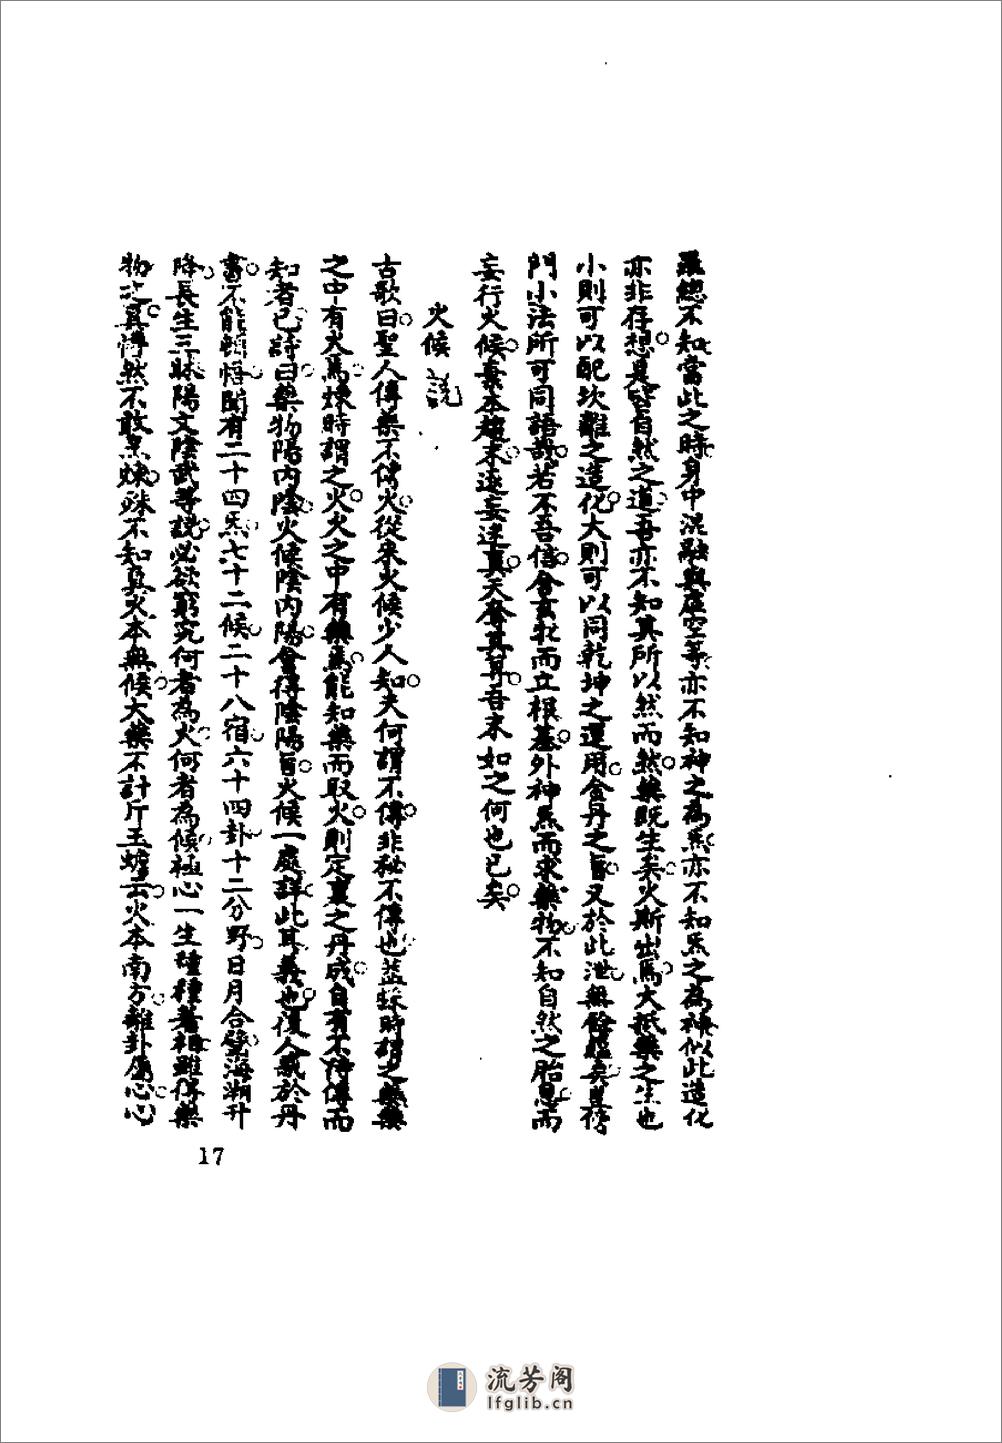 羅總不知當此之時身中混融與虛空等亦不知神之為炁亦不知炁之為神似此造化
亦非存想是皆自然之道吾亦不知其所以然而然藥既生矣火斯出焉大抵藥之生也
小則可以配坎離之造化大則可以同乾坤之運用金丹之旨又於此泄無餘蘊矣豈傍
門小法所可同語哉若不吾信舍玄牝而立根基外神炁而求藥物不知自然之胎息而
妄行火候棄本趨末逐妄迷真天奪其算吾末如之何也已矣
火候說
古歌曰聖人傳藥不傳火從來火候少人知夫何謂不傳非秘不傳也蓋採時謂之藥藥
之中有火焉煉時謂之火火之中有藥焉能知藥而取火則定裏之丹成自有不待傳而
知者已詩曰藥物陽內陰火候陰內陽會得陰陽旨火候一處詳此其義也後人惑於丹
書不能頓悟聞有二十四炁七十二候二十八宿六十四卦十二分野日月合璧海潮升
降長生三昧陽文陰武等說必欲窮究何者為火何者為候極心一生種種著相雖得藥
物之真懵然不敢烹煉殊不知真火本無候大藥不計斤玉蟾云火本南方離卦屬心心
17
流芳阁
lfglib.cn